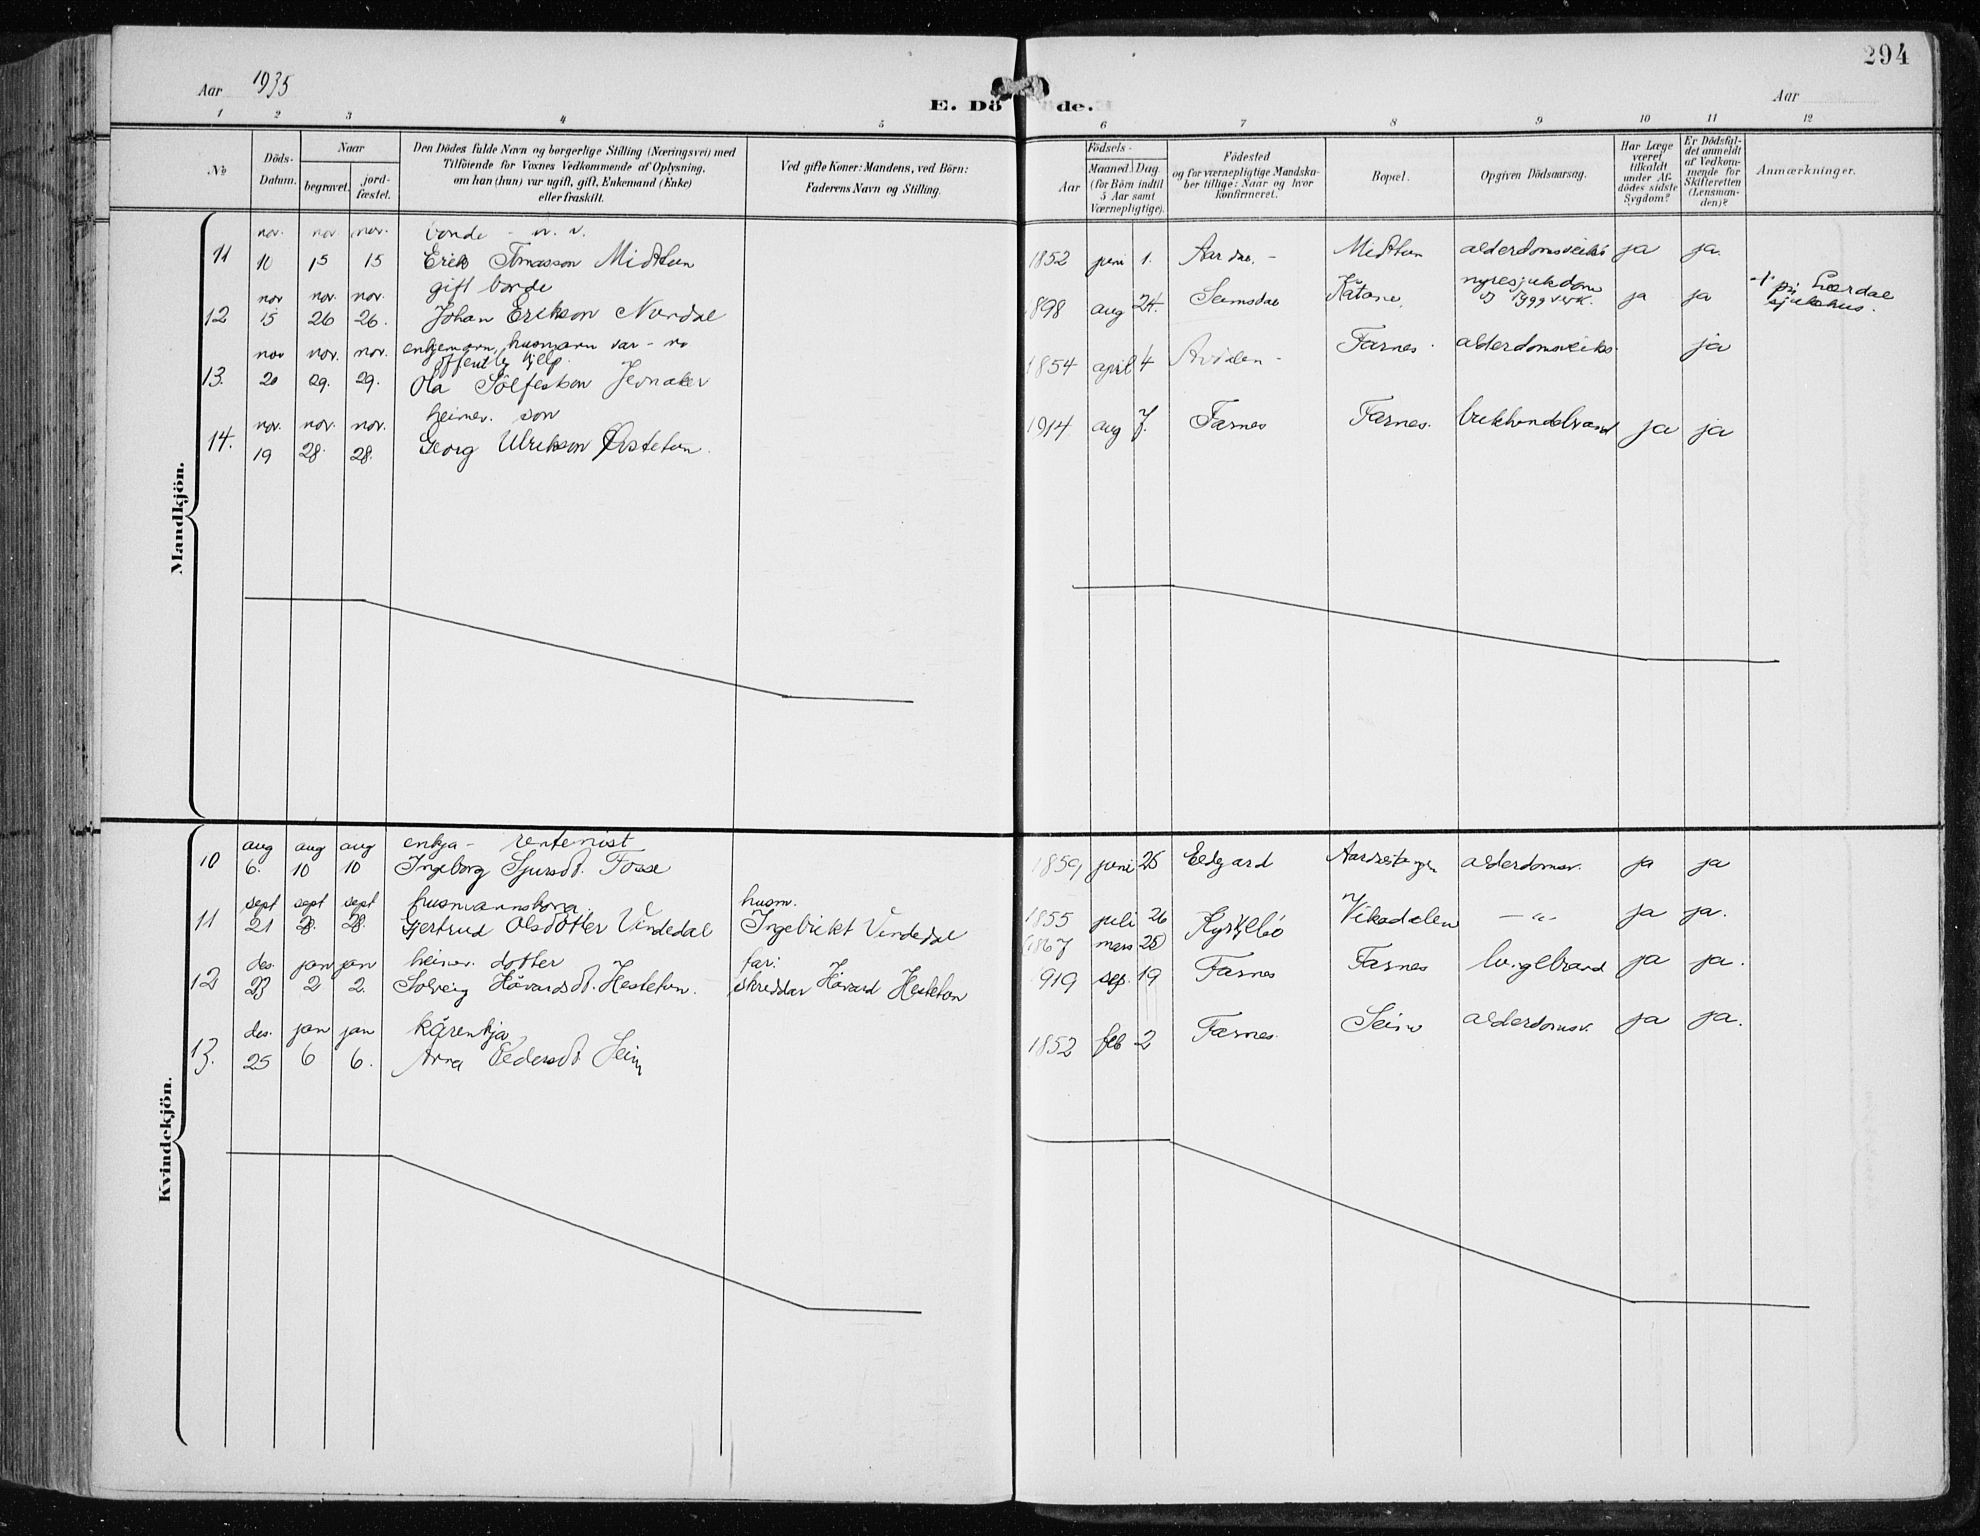 294
Aar 1935
E. Dö de.
Aar
1 2 3 4 5 6 7 8 9 10 11 12
No
Döds-Datum.
Naar
begravet.
jord-fæstet.
Den Dödes fulde Navn og borgerlige Stilling (Næringsvei) med
Tilföiende for Voxnes Vedkommende af Oplysning,
om han (hun) var ugift, gift, Enkemand (Enke)
eller fraskilt.
Ved gifte Koner: Mandens, ved Börn:
Faderens Navn og Stilling.
Födsels-
Aar
Maaned Dag
(for Börn indtil
5 Aar samt
Værnepligtige).
Födested
og for værnepligtige Mandska-
ber tillige: Naar og hvor
Konfirmeret.
Bopæl.
Opgiven Dödsaarsag.
Har Læge
været
tilkaldt
under Af-
dödes sidste
Sygdom?
Er Dödsfal-
det anmeldt
af Vedkom-
mende for
Skifteretten
(Lensman-
den)?
Anmærkninger.
Mandkjön.
nov. nov nov. bonde
11 10 15 15 Erik Tomasson Midttun 1852 juni 1. Midttun ja ja.
nov nov. nov. gift bonde
12 15 26 26. Johan Erikson Nundal 898 aug 24. Seimsdal nyresjukdom ja ja på Lærdal
sjukehus.
nov nov. nov. enkjemann, husmann var
offentleg hjelp.
13. 20 29. 29. Ola Sölfestson Jevnaker 1854 april 4 Farnes. ja
nov. nov. nov. heimev. son
14. 19 28. 28. Georg Ulrikson 1914 aug 7. Farnes Farnes. ja ja
Kvindekjön.
aug aug aug enkja - rentenist
10 6. 10 10 Ingeborg Sjursdt. Fosse 1859 juni 25 alderdomsv. ja ja
sept sept sept husmannskona husm.
11 21 28. 28. Gjertrud Olsdotter Vindedal Ingebrikt Vindedal 1855 juli 26 Vikadalen — „ — ja ja.
1867 mars 25
des. jan jan heimev. dotter far:
12 23 2 2. Solveig Hövardsdt. Hestetun. skreddar Hövard Hestetun 919 sep. 19 Farnes Farnes lungebrand ja ja.
des. jan jan kårenkja
13. 25 6 6. Anna Pedersdt. Seim 1852 feb 2 Farnes. Seim alderdomsv. ja ja.